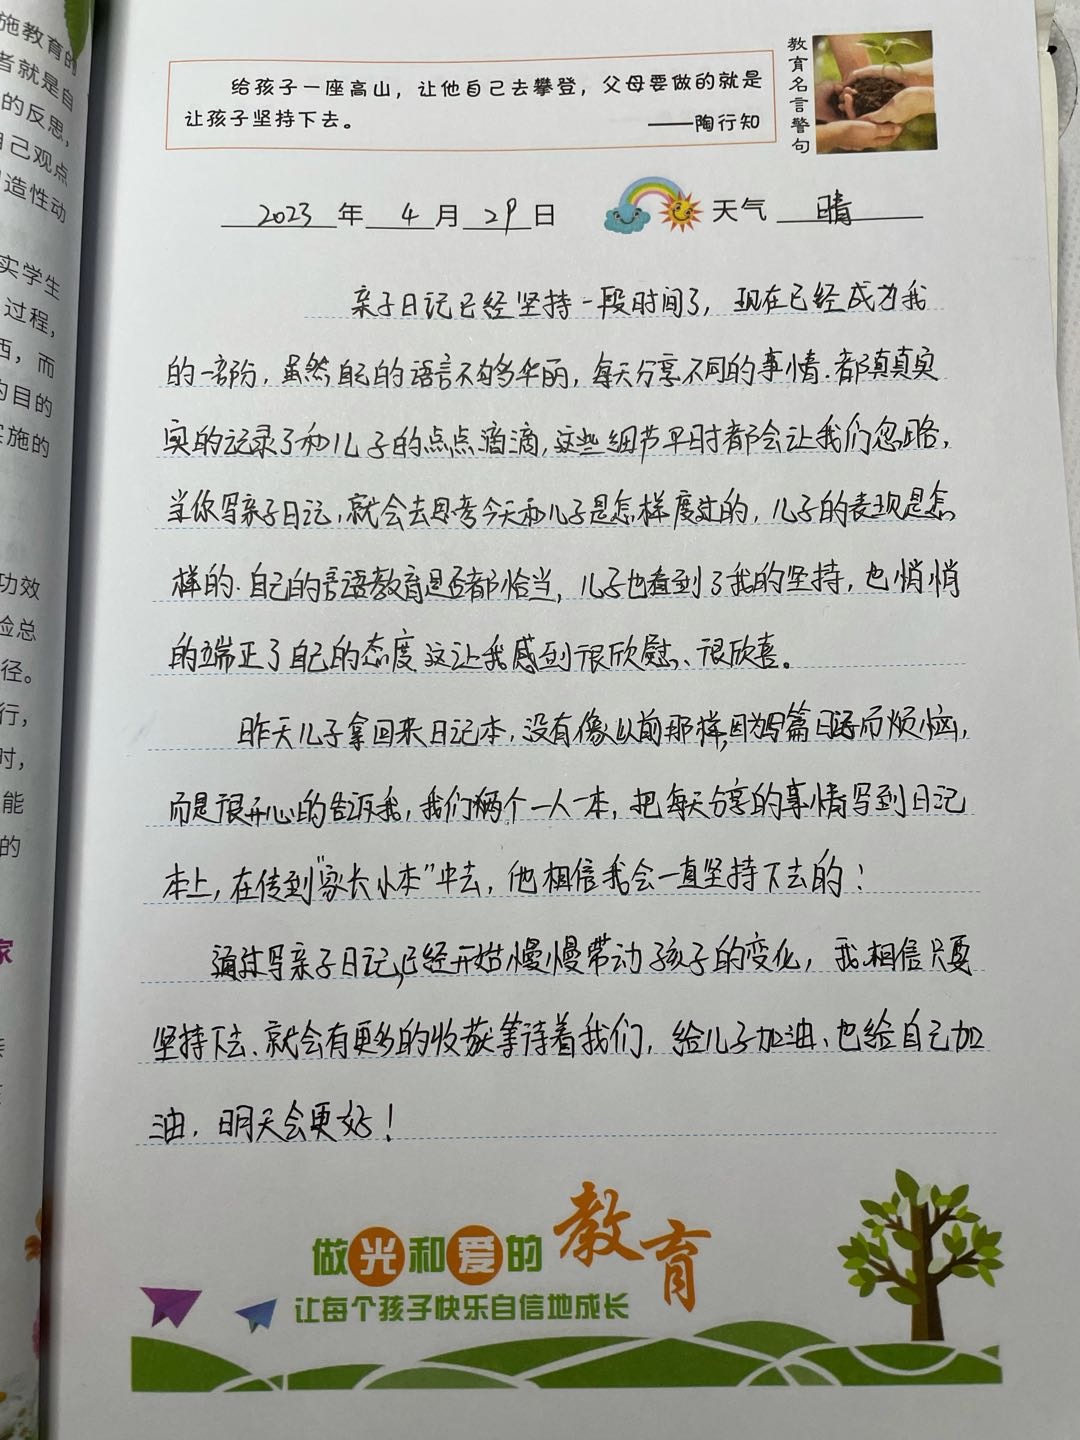 施教育的
者就是自
的反思，
自己观点
造性动
实学生
过程，
西，而
的目的
实施的
功效
验总
径。
行，
时，
能
的
家
给孩子一座高山，让他自己去攀登，父母要做的就是
让孩子坚持下去。 ——陶行知
教育名言警句
2023 年 4 月 29 日 天气 晴
亲子日记已经坚持一段时间了，现在已经成为我
的一部份，虽然自己的语言不够多华丽，每天分享不同的事情.都真真实
实的记录了和儿子的点点滴滴，这些细节平时都会让我们忽略，
当你写亲子日记，就会去思考今天和儿子是怎样度过的，儿子的表现是怎
样的.自己的言语教育是否都恰当，儿子也看到了我的坚持，也悄悄
的端正了自己的态度这让我感到很欣慰、很欣喜。
昨天儿子拿回来日记本，没有像以前那样，因为写篇日记而烦恼，
而是很开心的告诉我，我们俩个一人一本，把每天分享的事情写到日记
本上，在传到“家长小本”中去，他相信我会一直坚持下去的！
通过写亲子日记，已经开始慢慢带动孩子的变化，我相信只要
坚持下去、就会有更多的收获等待着我们，给儿子加油、也给自己加
油，明天会更好！
做光和爱的教育
让每个孩子快乐自信地成长